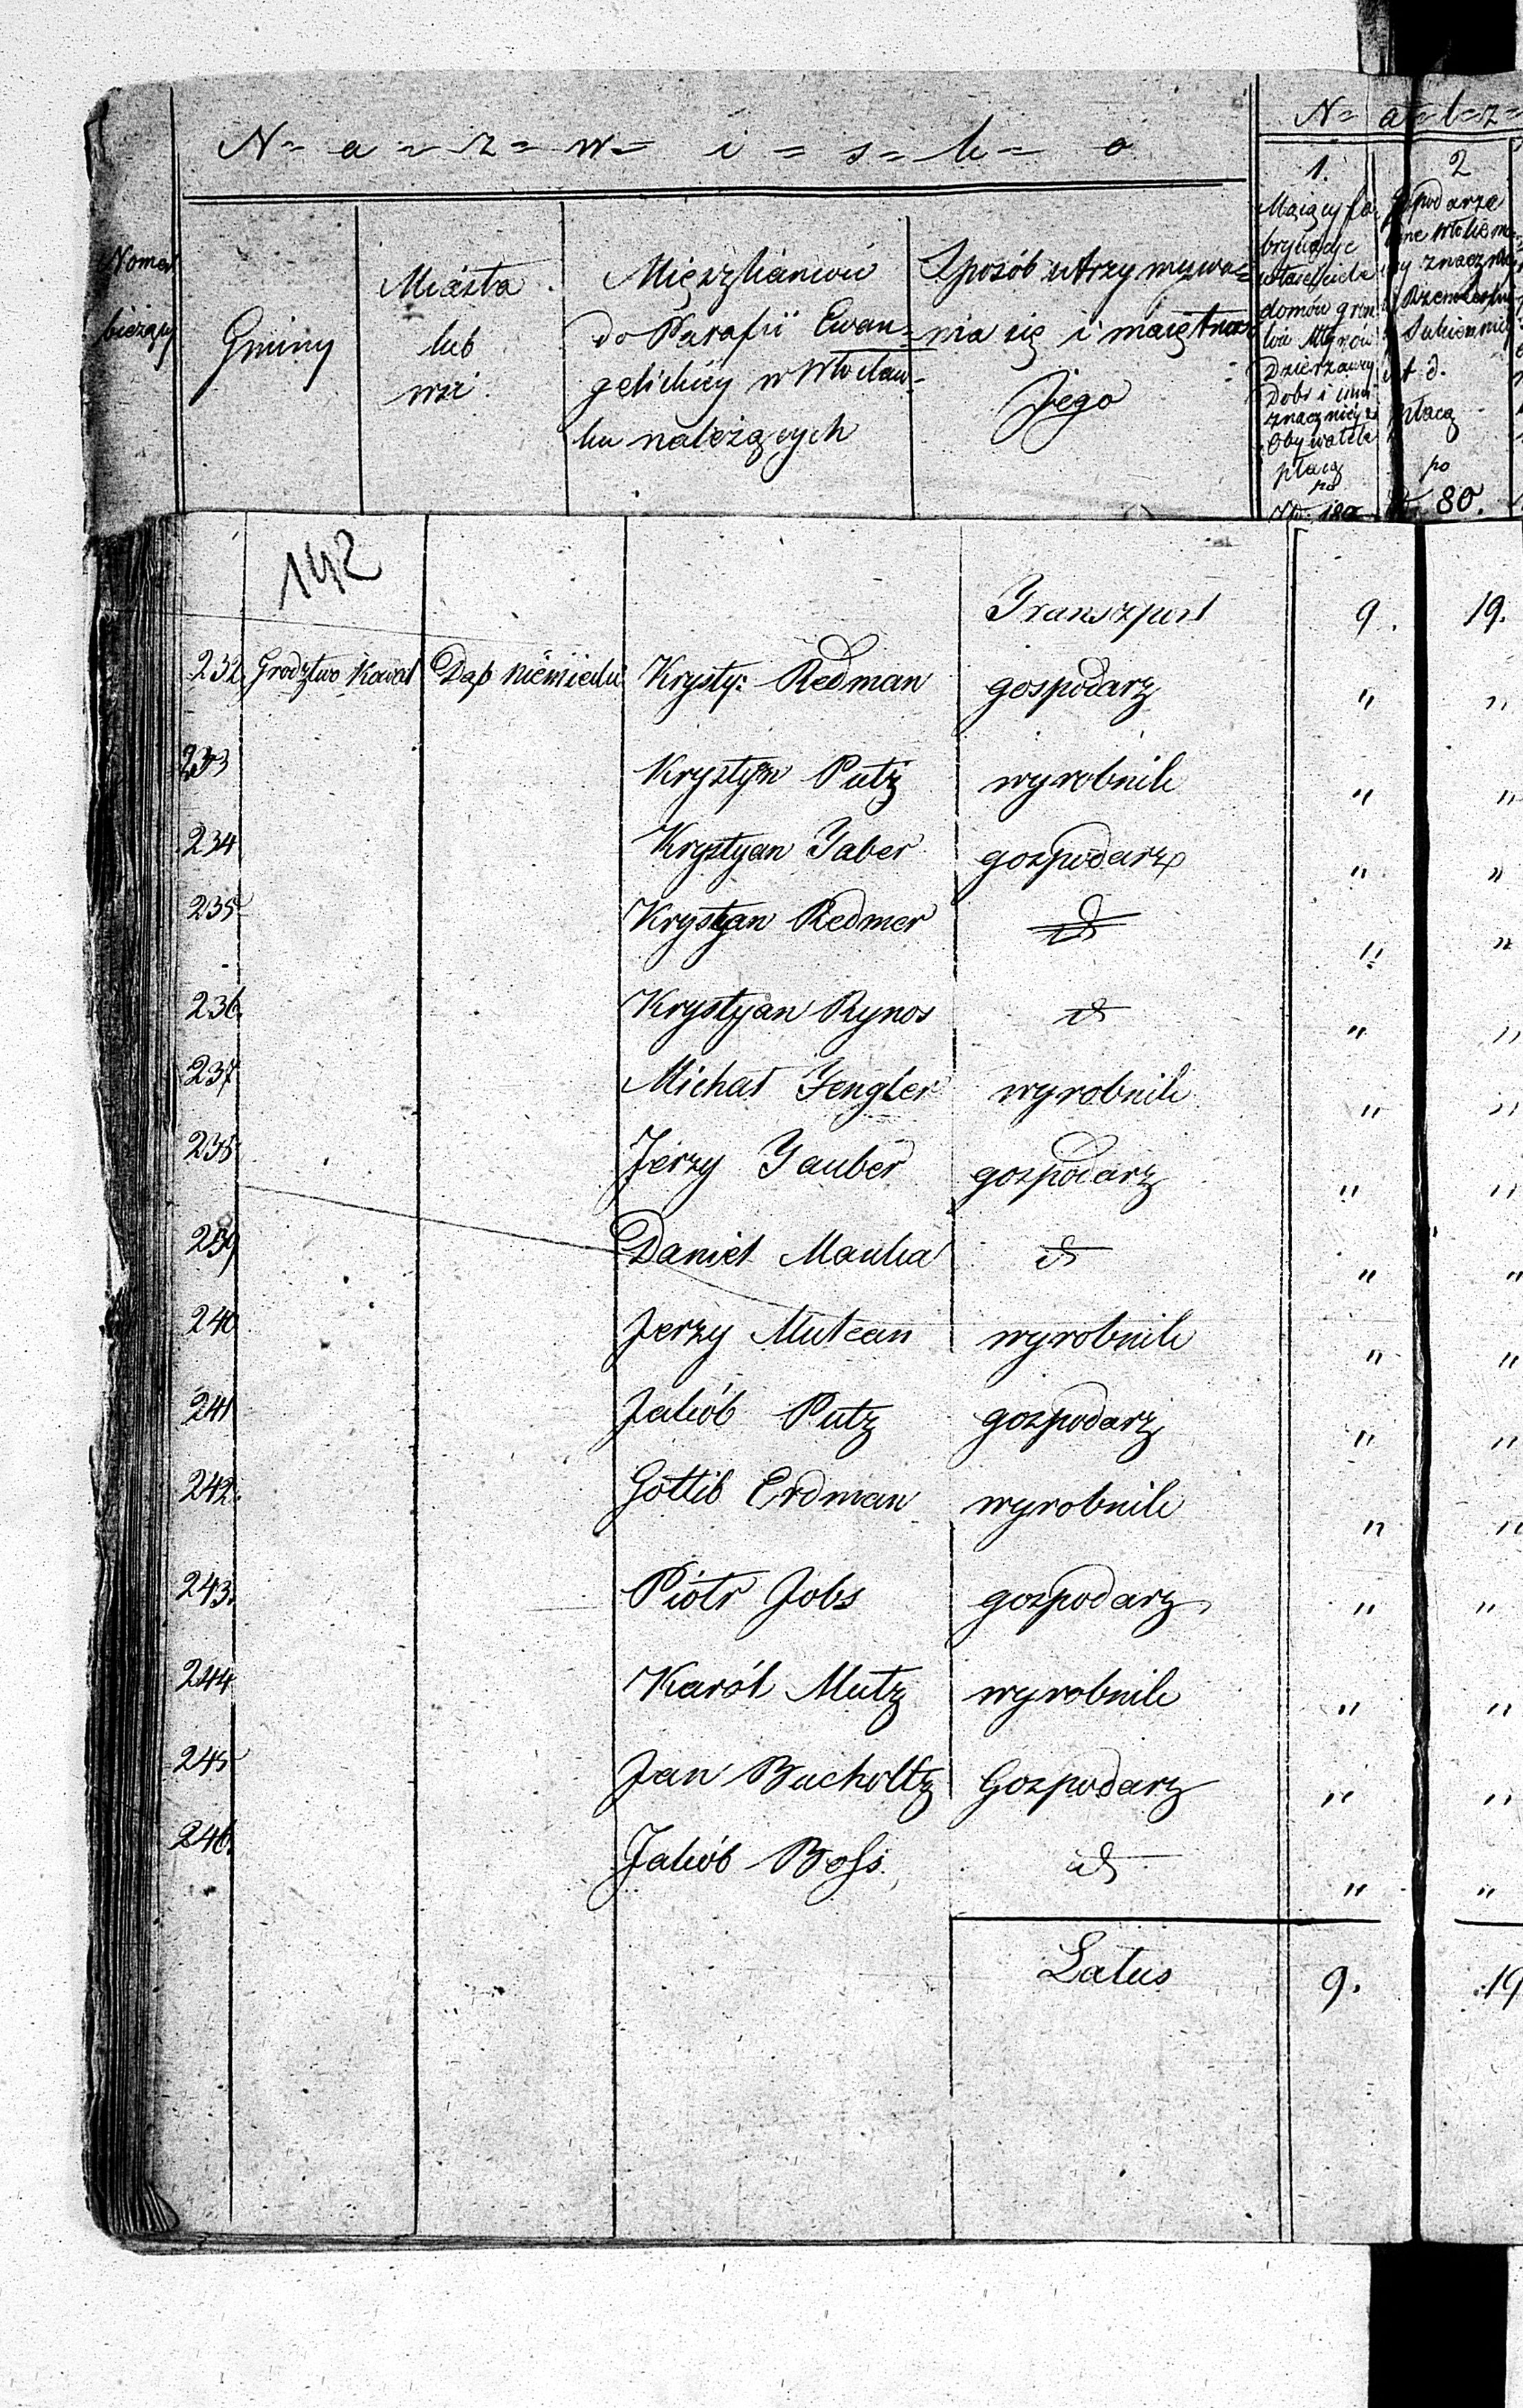 N = a = z = w = i = s = k = o
N = a = b = z =
Numer
bieżący
Gminy
Miasta
lub
wsi
Mięszkańców
do Parafii Ewan=
gelickiey w Włocław=
ku należących
Sposób utrzymywa=
nia się i maiętnos
Jego
1.
Maiący fa
bryki
domów
Dzierzawcy
Dobr i inni
znacznieysi
Obywatele
płacą
po
180
2
Sukiennicy
i t. d.
płacą
po
80.
142
Transzport 9. 19.
232. Grodztwo Kowal Dąb Niemiecki Krysty: Redman gospodarz " "
233 Krystyn Putz wyrobnik " "
234 Krystyan Taber gospodarz " "
235 Krystyan Redmer id " "
236. Krystyan Rynos id " "
237 Michał Fengler wyrobnik " "
238 Jerzy Tauber gospodarz " "
239 Daniel Manka id " "
240 Jerzy Mutcan wyrobnik " "
241 Jakób Putz gospodarz " "
242. Gottlib Erdman wyrobnik " "
243. Piotr Jobs gospodarz " "
244 Karól Mutz wyrobnik " "
245 Jan Bucholtz Gospodarz " "
246. Jakób Boss id " "
Latus 9. 19